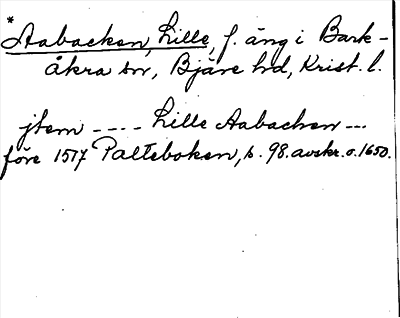 *
Aabacken, Lille, f. äng i Bark-
åkra sn, Bjäre hd, Krist. l.
jtem ---- Lille Aabachen ---
före 1517 Palteboken, s. 98. avskr. o. 1650.